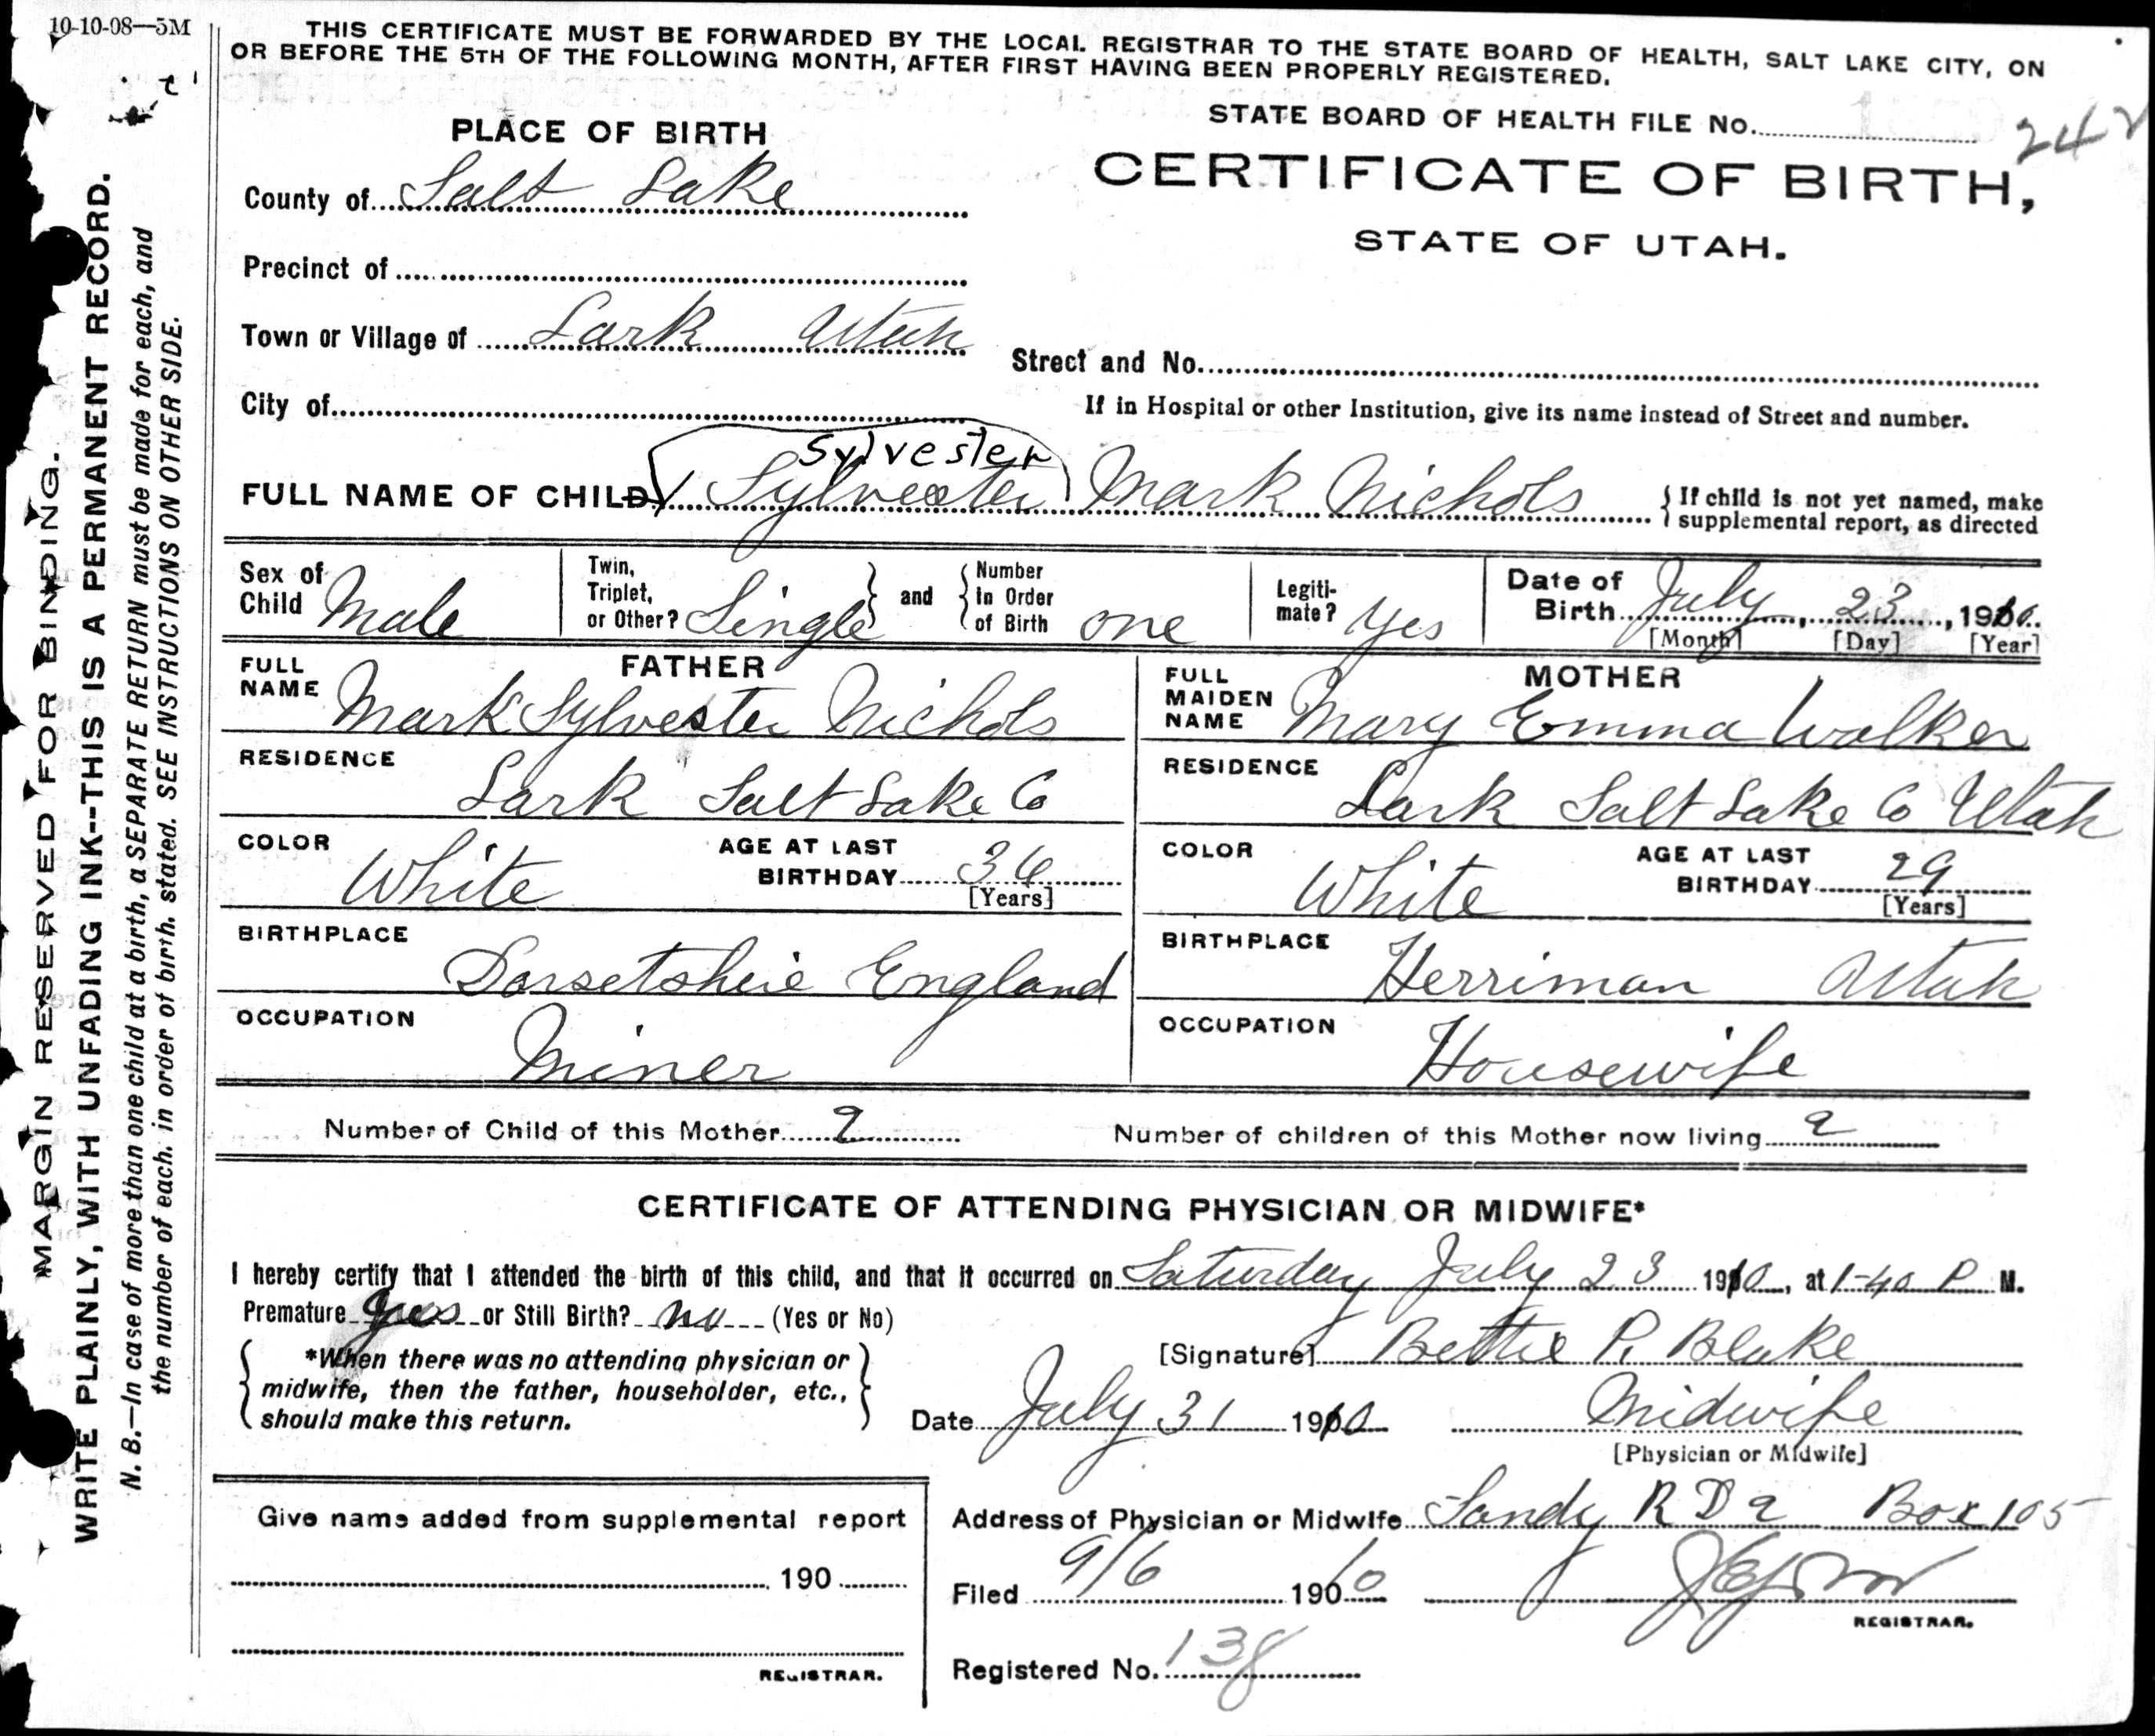 10-10-08—5M
THIS CERTIFICATE MUST BE FORWARDED BY THE LOCAL REGISTRAR TO THE STATE BOARD OF HEALTH, SALT LAKE CITY, ON
OR BEFORE THE 5TH OF THE FOLLOWING MONTH, AFTER FIRST HAVING BEEN PROPERLY REGISTERED.
MARGIN RESERVED FOR BINDING.
WRITE PLAINLY, WITH UNFADING INK--THIS IS A PERMANENT RECORD.
N. B.—In case of more than one child at a birth, a SEPARATE RETURN must be made for each, and
the number of each. in order of birth. stated. SEE INSTRUCTIONS ON OTHER SIDE.
STATE BOARD OF HEALTH FILE No. 242
CERTIFICATE OF BIRTH,
STATE OF UTAH.
PLACE OF BIRTH
County of Salt Lake
Precinct of
Town or Village of Lark Utah
Street and No.
City of
If in Hospital or other Institution, give its name instead of Street and number.
Sylvester
FULL NAME OF CHILD Sylvester Mark Nichols
If child is not yet named, make
supplemental report, as directed
Sex of Child Male
Twin, Triplet, or Other? Single and Number In Order of Birth one
Legiti-mate? Yes
Date of Birth July, 23, 1910.
[Month] [Day] [Year]
FATHER
FULL NAME Mark Sylvester Nichols
RESIDENCE Lark Salt Lake Co
COLOR White AGE AT LAST BIRTHDAY 36
[Years]
BIRTHPLACE Dorsetshire England
OCCUPATION Miner
MOTHER
FULL MAIDEN NAME Mary Emma Walker
RESIDENCE Lark Salt Lake Co Utah
COLOR White AGE AT LAST BIRTHDAY 29
[Years]
BIRTHPLACE Herriman Utah
OCCUPATION Housewife
Number of Child of this Mother 2
Number of children of this Mother now living 2
CERTIFICATE OF ATTENDING PHYSICIAN OR MIDWIFE*
I hereby certify that I attended the birth of this child, and that it occurred on Saturday July 23 1910, at 1-40 P M.
Premature Yes or Still Birth? no (Yes or No)
*When there was no attending physician or
midwife, then the father, householder, etc.,
should make this return.
[Signature] Bettie P. Blake
Date July 31 1910
Midwife
[Physician or Midwife]
Give name added from supplemental report
190
REGISTRAR.
Address of Physician or Midwife Sandy R D 2 Box 105
Filed 9/6 1910
REGISTRAR.
Registered No. 138